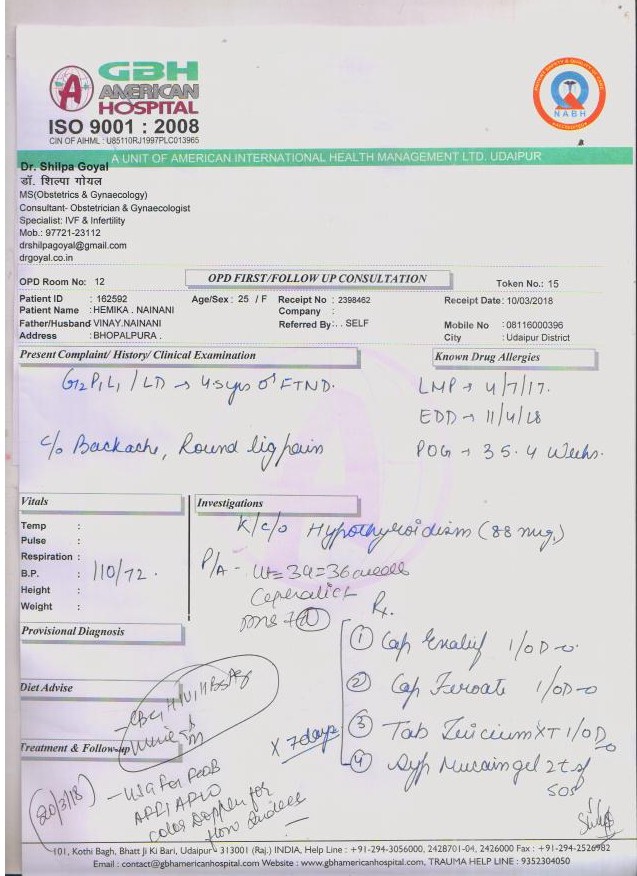 GBH
AMERICAN
HOSPITAL
ISO 9001 : 2008
CIN OF AIHML : U85110RJ1997PLC013965
NABH
A UNIT OF AMERICAN INTERNATIONAL HEALTH MANAGEMENT LTD. UDAIPUR
Dr. Shilpa Goyal
डॉ. शिल्पा गोयल
MS(Obstetrics & Gynaecology)
Consultant- Obstetrician & Gynaecologist
Specialist: IVF & Infertility
Mob.: 97721-23112
drshilpagoyal@gmail.com
drgoyal.co.in
OPD Room No: 12 OPD FIRST/FOLLOW UP CONSULTATION Token No.: 15
Patient ID : 162592 Age/Sex: 25 / F Receipt No : 2398462 Receipt Date: 10/03/2018
Patient Name : HEMIKA . NAINANI Company :
Father/Husband VINAY.NAINANI Referred By : . . SELF Mobile No : 08116000396
Address : BHOPALPURA . City : Udaipur District
Present Complaint/ History/ Clinical Examination Known Drug Allergies
G2P1L1 / LD → 4.5yrs FTND. LMP → 4/7/17.
EDD → 11/4/18
c/o Backache, Round lig pain POG → 35.4 Weeks.
Vitals Investigations
K/c/o Hypothyroidism (88 mcg.)
Temp :
Pulse :
Respiration : P/A - ut = 34=36 weeks
B.P. : 110/72. Cephalic
Height :
Weight : Rx.
Provisional Diagnosis
① Cap 1/OD
Diet Advise
② Cap Feroate 1/OD
- CBC, HIV, HBsAg
Urine R M
X 7 days ③ Tab XT 1/OD
Treatment & Follow-up
④ Syp Mucaine gel 2tsf
SOS
(20/3/18) - USG For
AFI,
color Doppler for
flow studies
101, Kothi Bagh, Bhatt Ji Ki Bari, Udaipur - 313001 (Raj.) INDIA, Help Line : +91-294-3056000, 2428701-04, 2426000 Fax : +91-294-2526982
Email : contact@gbhamericanhospital.com Website : www.gbhamericanhospital.com, TRAUMA HELP LINE : 9352304050